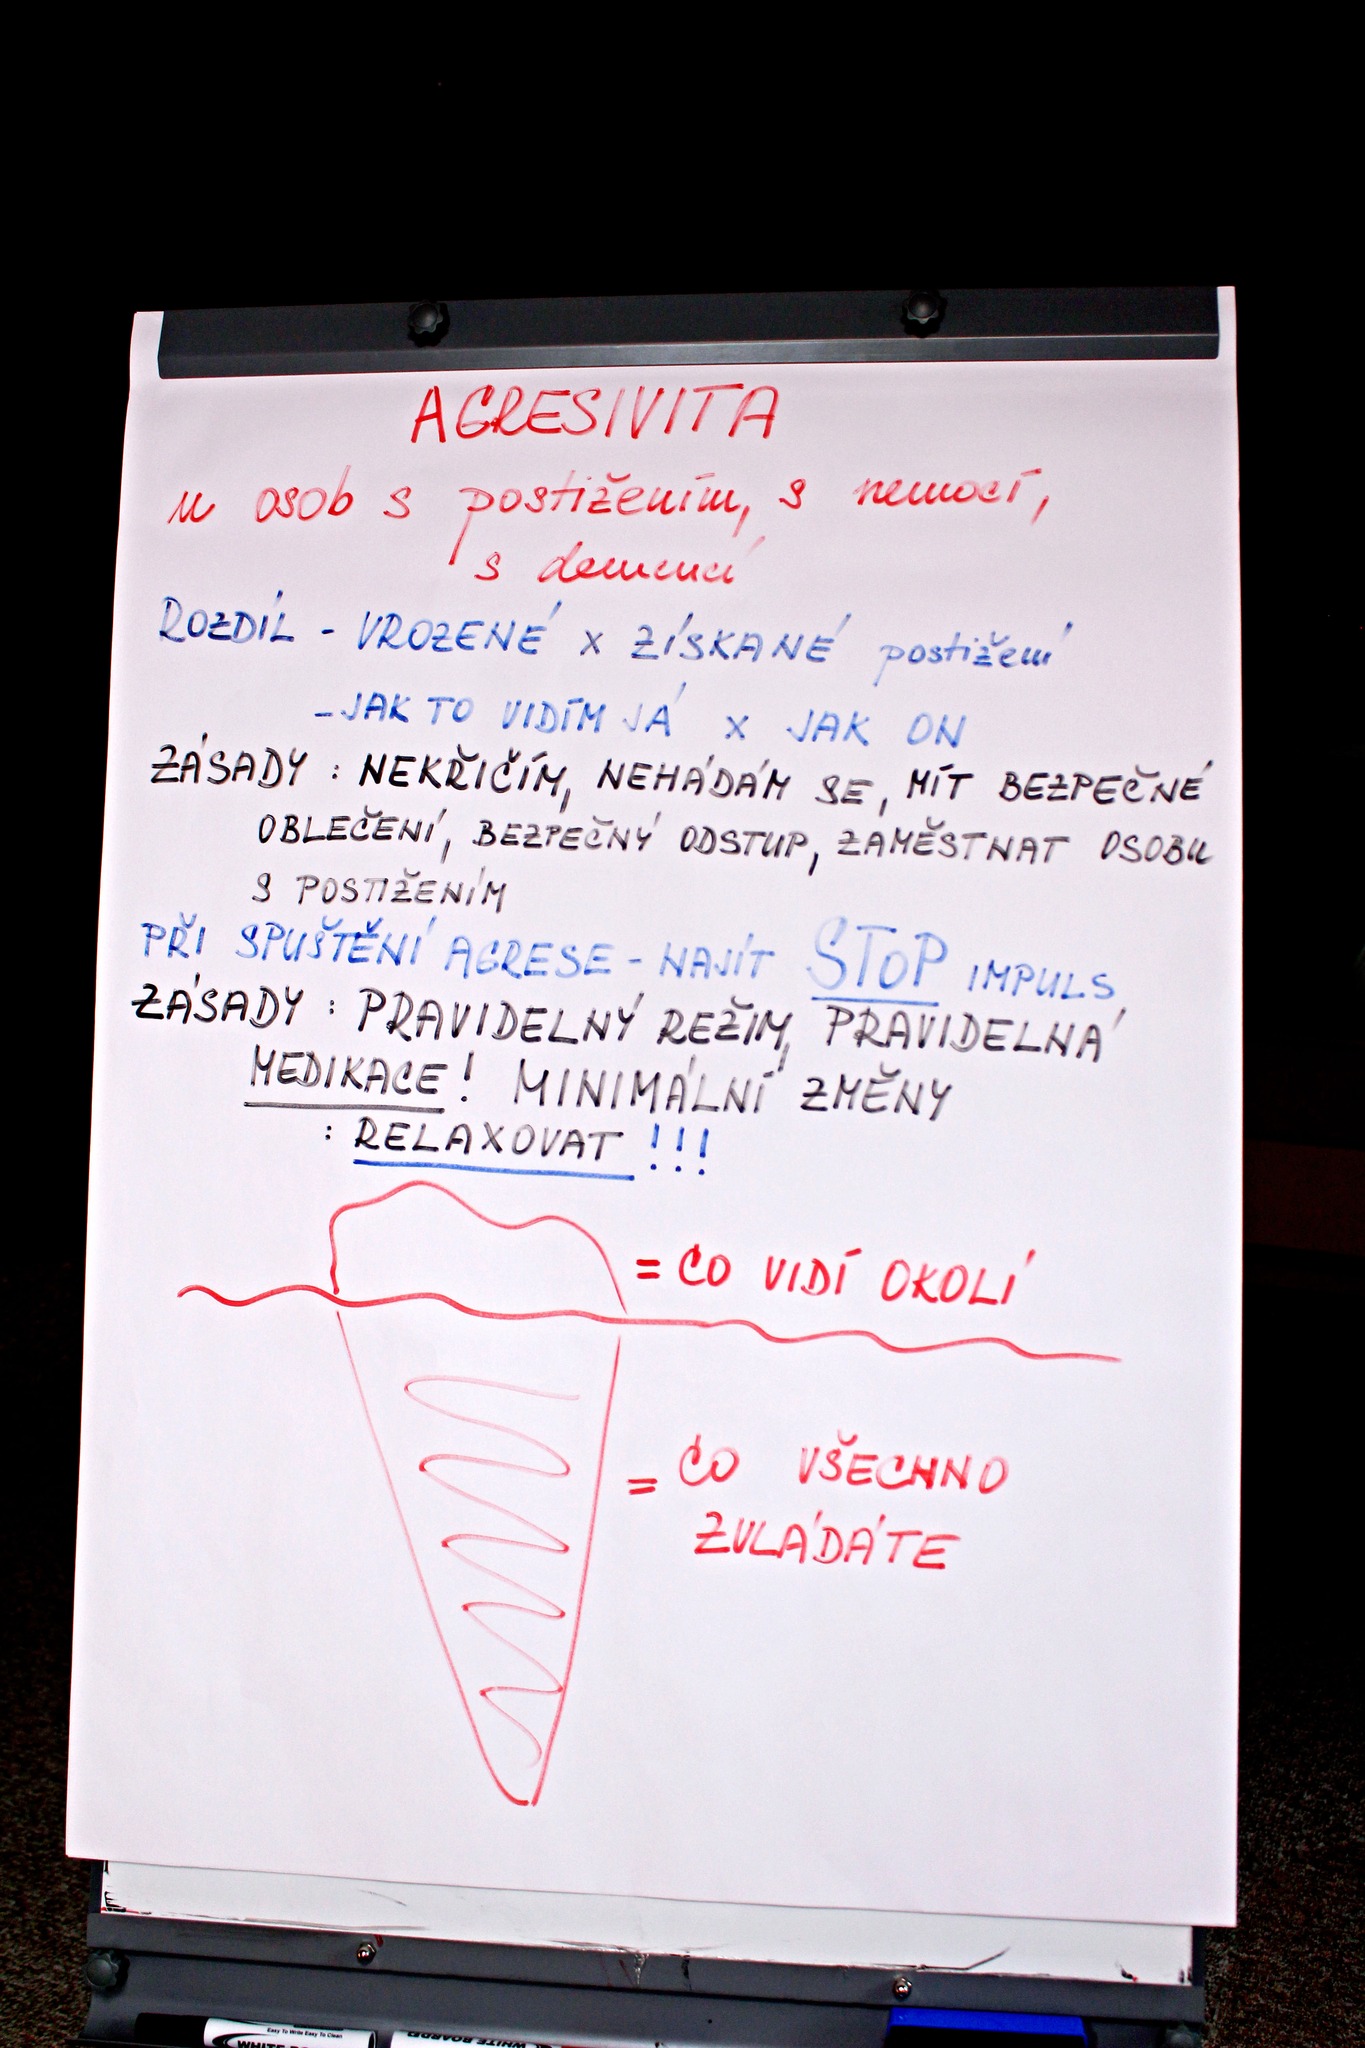 AGRESIVITA
u osob s postižením, s nemocí,
s demencí
ROZDÍL - VROZENÉ x ZÍSKANÉ postižení
- JAK TO VIDÍM JÁ x JAK ON
ZÁSADY : NEKŘIČÍM, NEHÁDÁM SE, MÍT BEZPEČNÉ
OBLEČENÍ, BEZPEČNÝ ODSTUP, ZAMĚSTNAT OSOBU
S POSTIŽENÍM
PŘI SPUŠTĚNÍ AGRESE - NAJÍT STOP IMPULS
ZÁSADY : PRAVIDELNÝ REŽIM, PRAVIDELNÁ
MEDIKACE! MINIMÁLNÍ ZMĚNY
: RELAXOVAT !!!
= CO VIDÍ OKOLÍ
= CO VŠECHNO
ZVLÁDÁTE
Easy To Write Easy To Clean
WHITE
WHITE BOARD